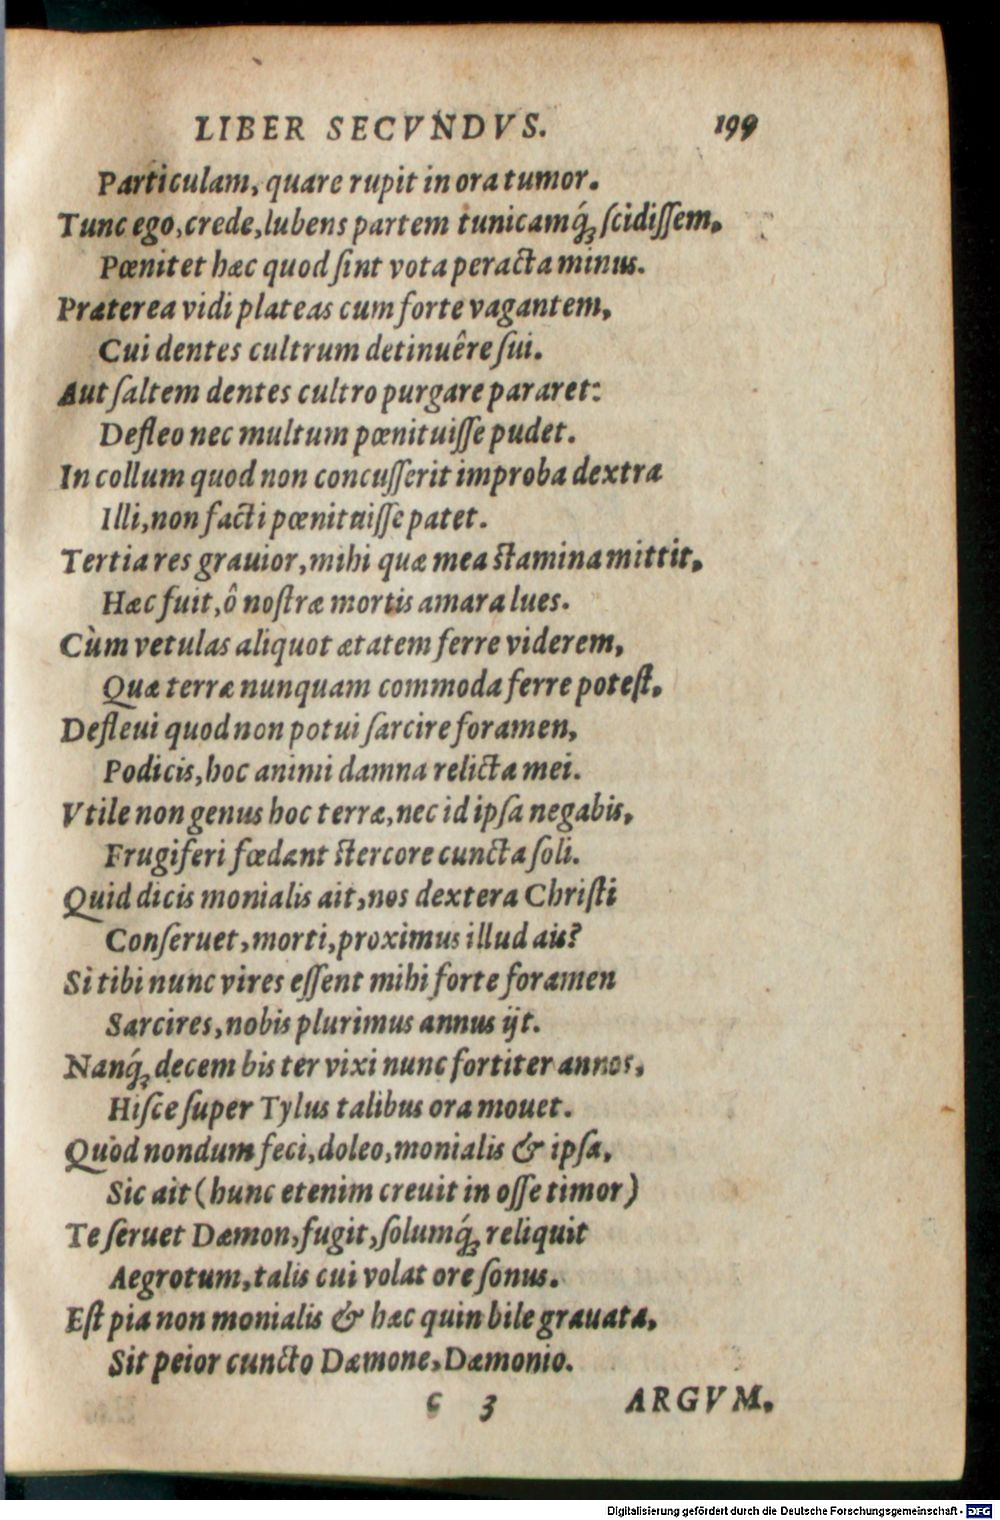 LIBER SECVNDVS. 199
Particulam, quare rupit in ora tumor.
Tunc ego, crede, lubens partem tunicamq́ꝫ ſcidiſſem,
Pœnitet hæc quod ſint vota peracta minus.
Præterea vidi plateas cum forte vagantem,
Cui dentes cultrum detinuêre ſui.
Aut ſaltem dentes cultro purgare pararet:
Defleo nec multum pœnituiſſe pudet.
In collum quod non concuſſerit improba dextra
Illi, non facti pœnituiſſe patet.
Tertia res grauior, mihi quæ mea ſtamina mittit,
Hæc fuit, ô noſtræ mortis amara lues.
Cùm vetulas aliquot ætatem ferre viderem,
Quæ terræ nunquam commoda ferre poteſt,
Defleui quod non potui ſarcire foramen,
Podicis, hoc animi damna relicta mei.
Vtile non genus hoc terræ, nec id ipſa negabis,
Frugiferi fœdant ſtercore cuncta ſoli.
Quid dicis monialis ait, nos dextera Chriſti
Conſeruet, morti, proximus illud ais?
Si tibi nunc vires eſſent mihi forte foramen
Sarcires, nobis plurimus annus ijt.
Nanq́ꝫ decem bis ter vixi nunc fortiter annos,
Hiſce ſuper Tylus talibus ora mouet.
Quòd nondum feci, doleo, monialis & ipſa,
Sic ait (hunc etenim creuit in oſſe timor)
Te ſeruet Dæmon, fugit, ſolumq́ꝫ reliquit
Aegrotum, talis cui volat ore ſonus.
Eſt pia non monialis & hæc quin bile grauata,
Sit peior cuncto Dæmone, Dæmonio.
c 3 ARGVM.
Digitalisierung gefördert durch die Deutsche Forschungsgemeinschaft - DFG